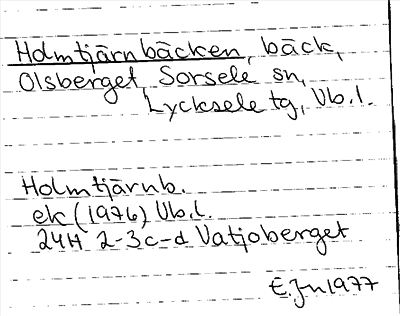 Holmtjärnbäcken, bäck,
Olsberget, Sorsele sn,
Lycksele tg, Vb.l.
Holmtjärnb.
ek (1976) Vb.l.
24H 2-3c-d Vatjoberget
E.Jn 1977